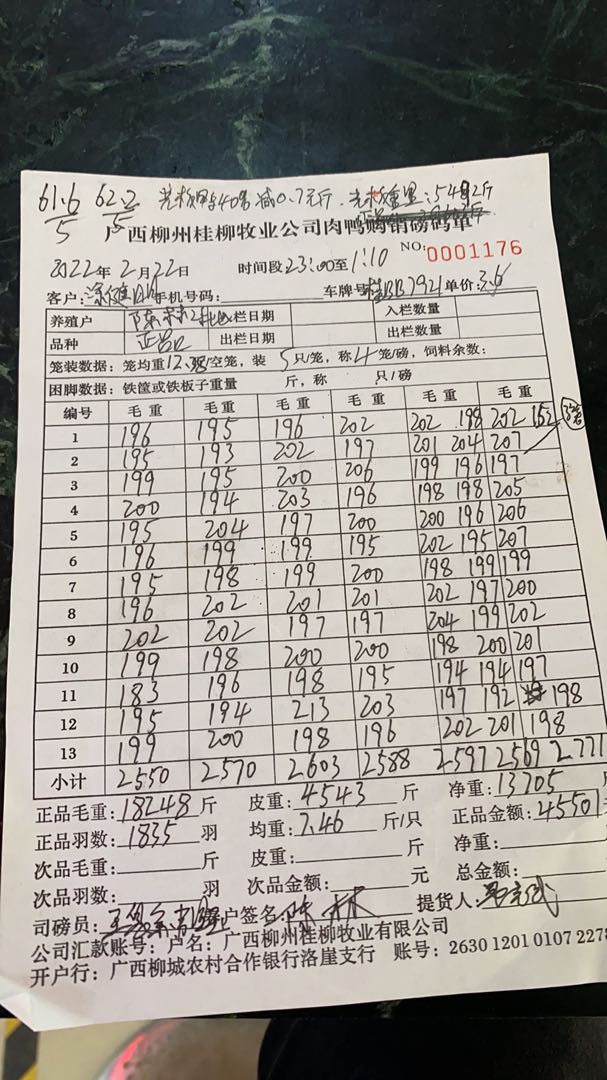 61.6/5 62.2/5 减0.7元/斤
广西柳州桂柳牧业公司肉鸭购销磅码单
2022年2月22日 时间段23:00至1:10 NO:0001176
客户: 手机号码: 车牌号 BB7921 单价:3.6
养殖户 出栏日期 入栏数量
品种 出栏日期 出栏数量
笼装数据:笼均重12.38/空笼,装5只/笼,称4笼/磅,饲料余数:
困脚数据:铁筐或铁板子重量 斤,称 只/磅
编号 毛重 毛重 毛重 毛重 毛重 毛重
1 196 195 196 202 202 198 202 152
2 195 193 202 197 201 204 207
3 199 195 200 206 199 196 197
4 200 194 203 196 198 198 205
5 195 204 197 200 200 196 206
6 196 199 199 195 202 195 207
7 195 198 199 200 198 199 199
8 196 202 201 201 202 197 200
9 202 202 197 197 204 199 202
10 199 198 200 200 198 200 201
11 183 196 198 195 194 194 197
12 195 194 213 203 197 192 198
13 199 200 198 196 202 201 198
小计 2550 2570 2603 2588 2597 2569 2771
正品毛重:18248斤 皮重:4543斤 净重:13705
正品羽数:1835羽 均重:7.46斤/只 正品金额:45501
次品毛重: 斤 皮重: 斤 净重:
次品羽数: 羽 次品金额: 元 总金额:
司磅员: 户签名: 提货人:
公司汇款账号:户名:广西柳州桂柳牧业有限公司
开户行:广西柳城农村合作银行洛崖支行 账号:2630 1201 0107 2278